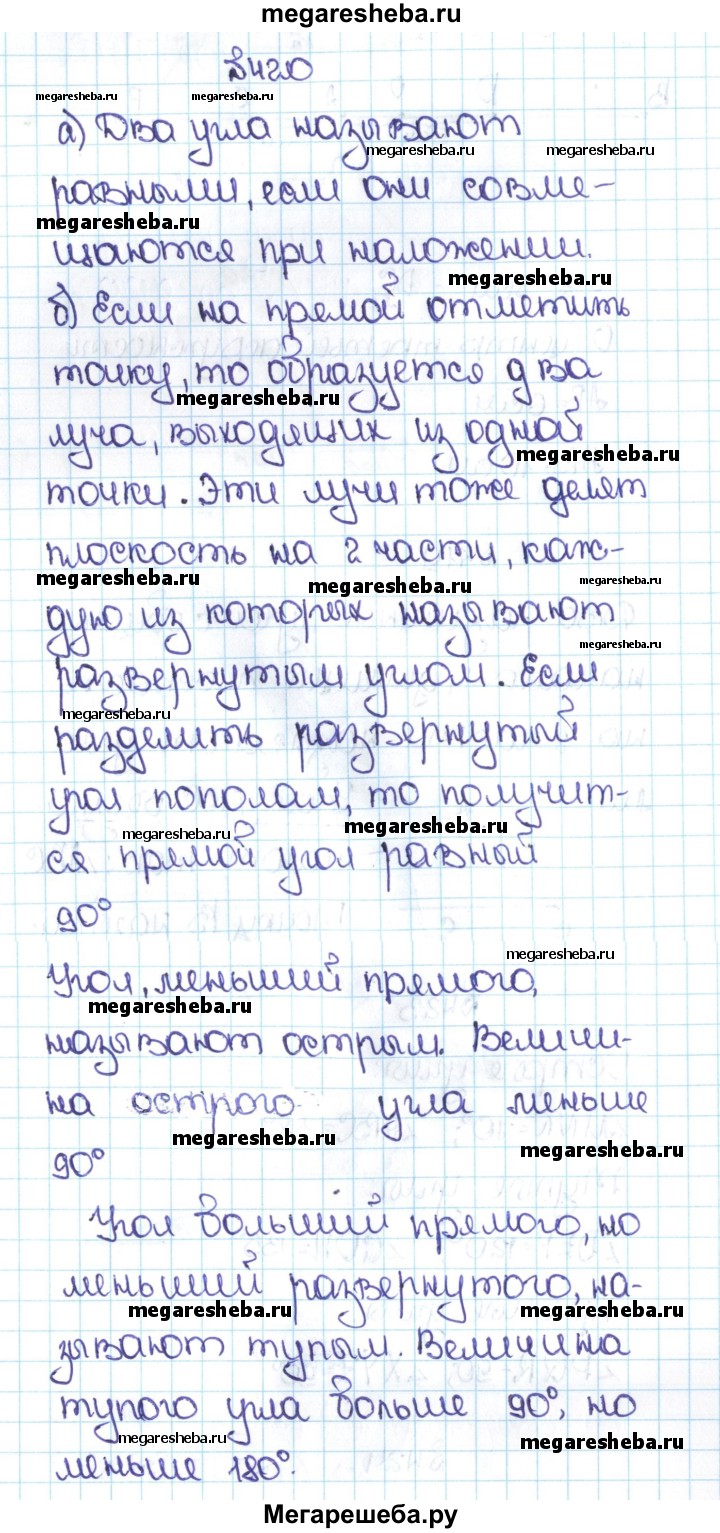 megaresheba.ru
№420
megaresheba.ru megaresheba.ru
а) Два угла называют
megaresheba.ru megaresheba.ru
равными, если они совме-
megaresheba.ru
щаются при наложении.
megaresheba.ru
б) Если на прямой отметить
точку, то образуется два
megaresheba.ru
луча, выходящих из одной
megaresheba.ru
точки. Эти лучи тоже делят
плоскость на 2 части, каж-
megaresheba.ru megaresheba.ru megaresheba.ru
дую из которых называют
megaresheba.ru
развернутым углом. Если
megaresheba.ru
разделить развернутый
угол пополам, то получит-
megaresheba.ru megaresheba.ru
ся прямой угол равный
90°
megaresheba.ru
Угол, меньший прямого,
megaresheba.ru
называют острым. Величи-
на острого угла меньше
megaresheba.ru megaresheba.ru
90°
Угол больший прямого, но
меньший развернутого, на-
megaresheba.ru megaresheba.ru
зывают тупым. Величина
тупого угла больше 90°, но
megaresheba.ru megaresheba.ru
меньше 180°.
Мегарешеба.ру